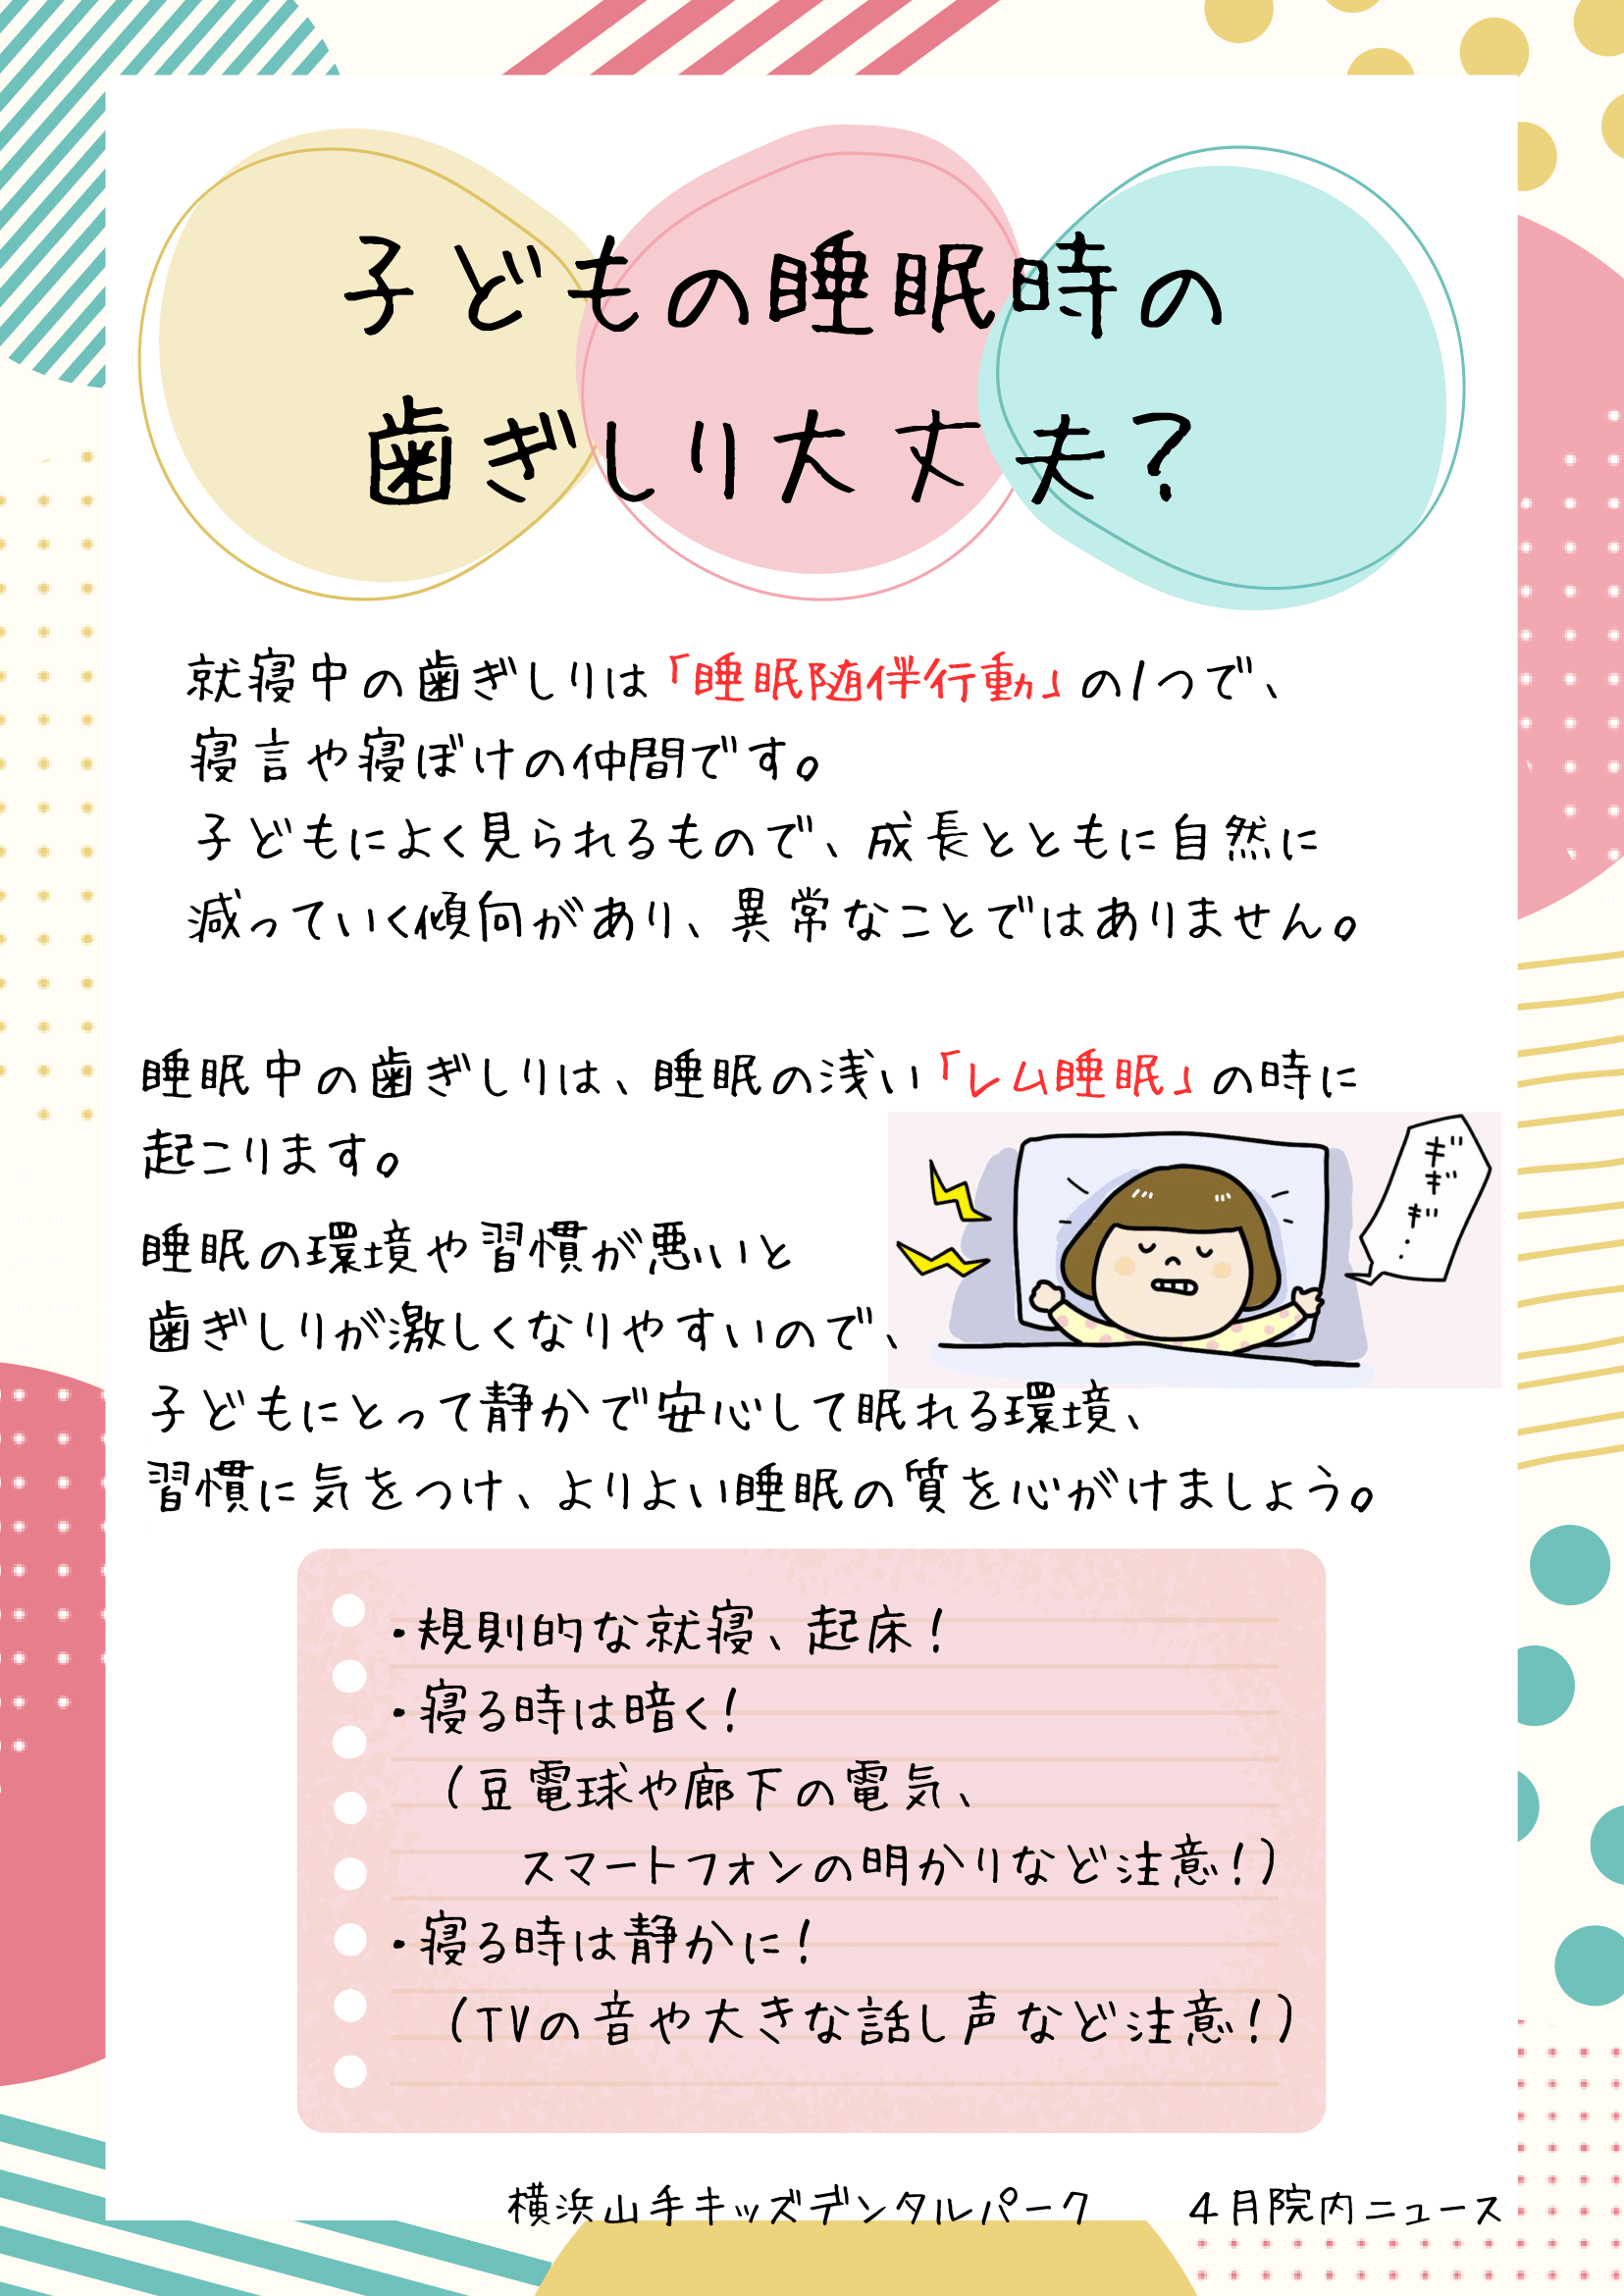 子どもの睡眠時の
歯ぎしり大丈夫?
就寝中の歯ぎしりは「睡眠随伴行動」の1つで、
寝言や寝ぼけの仲間です。
子どもによく見られるもので、成長とともに自然に
減っていく傾向があり、異常なことではありません。
睡眠中の歯ぎしりは、睡眠の浅い「レム睡眠」の時に
起こります。
ギギギ・・
睡眠の環境や習慣が悪いと
歯ぎしりが激しくなりやすいので、
子どもにとって静かで安心して眠れる環境、
習慣に気をつけ、よりよい睡眠の質を心がけましょう。
・規則的な就寝、起床!
・寝る時は暗く!
(豆電球や廊下の電気、
スマートフォンの明かりなど注意!)
・寝る時は静かに!
(TVの音や大きな話し声など注意!)
横浜山手キッズデンタルパーク 4月院内ニュース